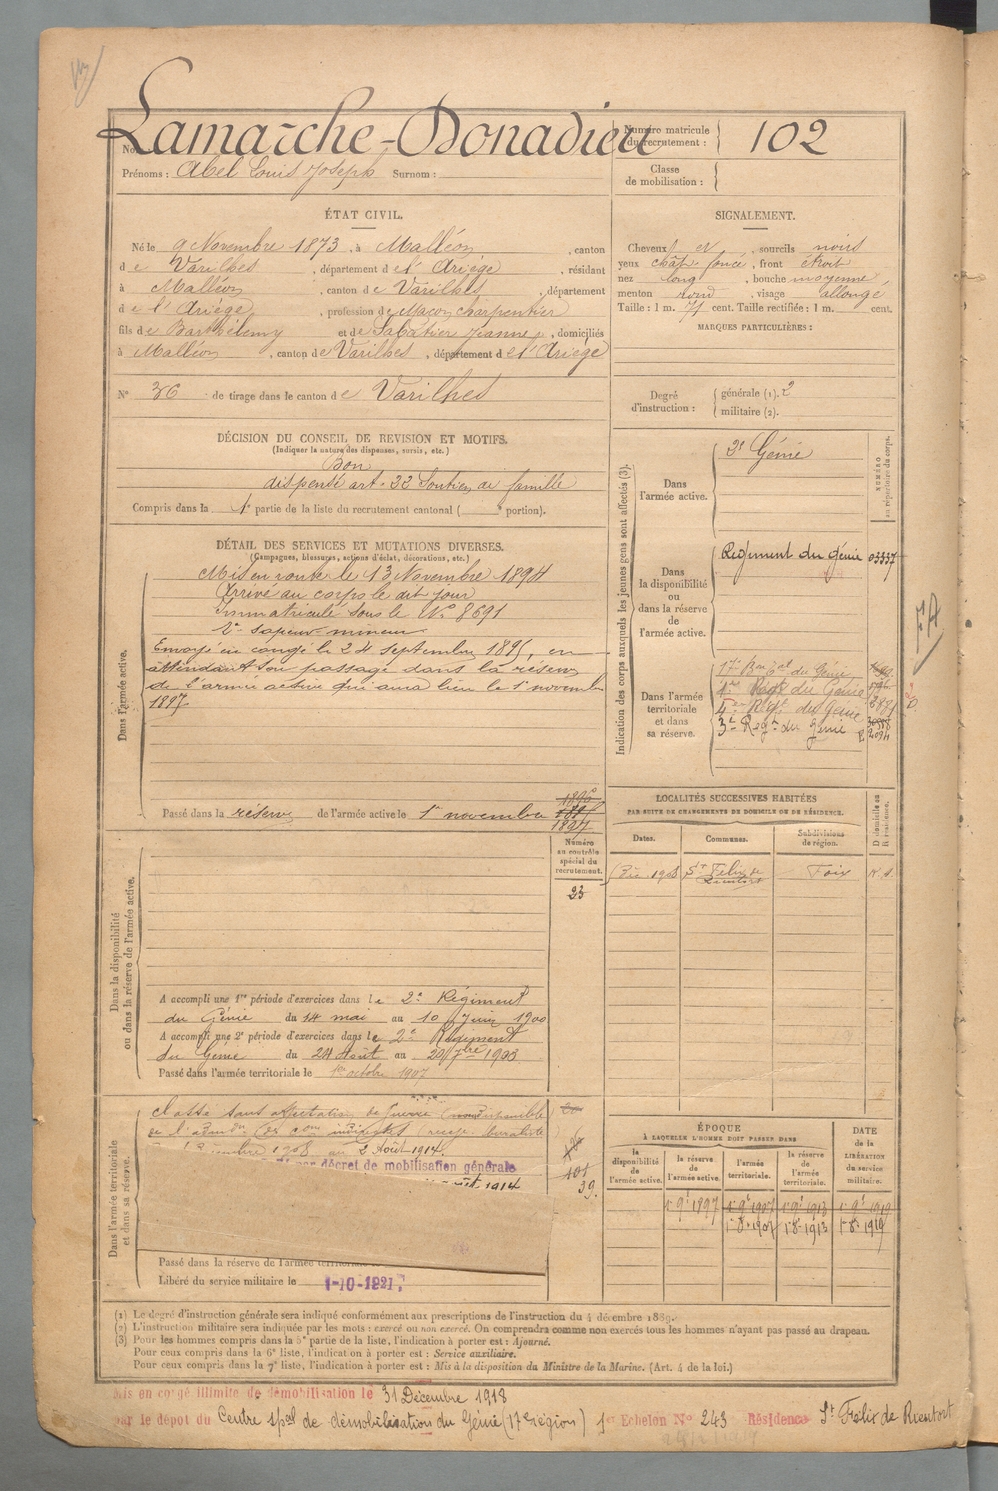 Lamarche-Donadieu
Nom
Prénoms : Abel Louis Joseph Surnom :
Numéro matricule du recrutement : 102
Classe de mobilisation :
ÉTAT CIVIL.
Né le 9 Novembre 1873, à Malléon, canton
de Varilhes, département de l'Ariège, résidant
à Malléon, canton de Varilhes, département
de l'Ariège, profession de Maçon charpentier
fils de Barthélemy et de Sabatier Jeanne, domiciliés
à Malléon, canton de Varilhes, département de l'Ariège
N° 36 de tirage dans le canton de Varilhes
SIGNALEMENT.
Cheveux et sourcils noirs
yeux chât. foncé, front étroit
nez long, bouche moyenne
menton rond, visage allongé
Taille : 1 m. 71 cent. Taille rectifiée : 1 m. cent.
MARQUES PARTICULIÈRES :
Degré d'instruction : générale (1). 2
militaire (2).
DÉCISION DU CONSEIL DE REVISION ET MOTIFS.
(Indiquer la nature des dispenses, sursis, etc.)
Bon
dispensé art. 22 Soutien de famille
Compris dans la 1e partie de la liste du recrutement cantonal ( portion).
DÉTAIL DES SERVICES ET MUTATIONS DIVERSES.
(Campagnes, blessures, actions d'éclat, décorations, etc.)
Dans l'armée active.
Mis en route le 13 Novembre 1894
Arrivé au corps le dit jour
Immatriculé sous le N° 8691
2e sapeur-mineur
Envoyé en congé le 24 septembre 1895, en
attendant son passage dans la réserve
de l'armée active qui aura lieu le 1er novembre
1897
Passé dans la réserve de l'armée active le 1er novembre 1897
Indication des corps auxquels les jeunes gens sont affectés (3).
NUMÉRO au répertoire du corps.
Dans l'armée active.
2e Génie
Dans la disponibilité ou dans la réserve de l'armée active.
Régiment du génie 03337
Dans l'armée territoriale et dans sa réserve.
17e Bon Tal du Génie
1er Régt du Génie
4e Régt du Génie
3e Régt du Génie
FA
LOCALITÉS SUCCESSIVES HABITÉES
PAR SUITE DE CHANGEMENTS DE DOMICILE OU DE RÉSIDENCE.
Dates. Communes. Subdivisions de région. D domicile ou R résidence.
1908 St Felix de Rieutort Foix
Numéro au contrôle spécial du recrutement.
23
Dans la disponibilité ou dans la réserve de l'armée active.
A accompli une 1re période d'exercices dans le 2e Régiment
du Génie du 14 mai au 10 Juin 1900
A accompli une 2e période d'exercices dans le 2e Régiment
du Génie du 24 Août au 20 7bre 1903
Passé dans l'armée territoriale le 1er octobre 1907
Dans l'armée territoriale et dans sa réserve.
Classé sans affectation de Guerre
1908 au 2 Août 1914.
par décret de mobilisation générale
août 1914
101
39.
Passé dans la réserve de l'armée territoriale
Libéré du service militaire le 1-10-1921.
ÉPOQUE
À LAQUELLE L'HOMME DOIT PASSER DANS
la disponibilité de l'armée active. la réserve de l'armée active. l'armée territoriale. la réserve de l'armée territoriale. DATE de la LIBÉRATION du service militaire.
1er 9e 1897 1er 9e 1907 1er 9e 1913 1er 9e 1919
1er 8e 1907 1er 8e 1913 1er 8e 1919
(1) Le degré d'instruction générale sera indiqué conformément aux prescriptions de l'instruction du 4 décembre 1889.
(2) L'instruction militaire sera indiquée par les mots : exercé ou non exercé. On comprendra comme non exercés tous les hommes n'ayant pas passé au drapeau.
(3) Pour les hommes compris dans la 5e partie de la liste, l'indication à porter est : Ajourné.
Pour ceux compris dans la 6e liste, l'indication à porter est : Service auxiliaire.
Pour ceux compris dans la 7e liste, l'indication à porter est : Mis à la disposition du Ministre de la Marine. (Art. 4 de la loi.)
Mis en congé illimité de démobilisation le 31 Décembre 1918
par le dépot du Centre spal de démobilisation du Génie (17e région) 1er Echelon N° 243 Résidence St Félix de Rieutort